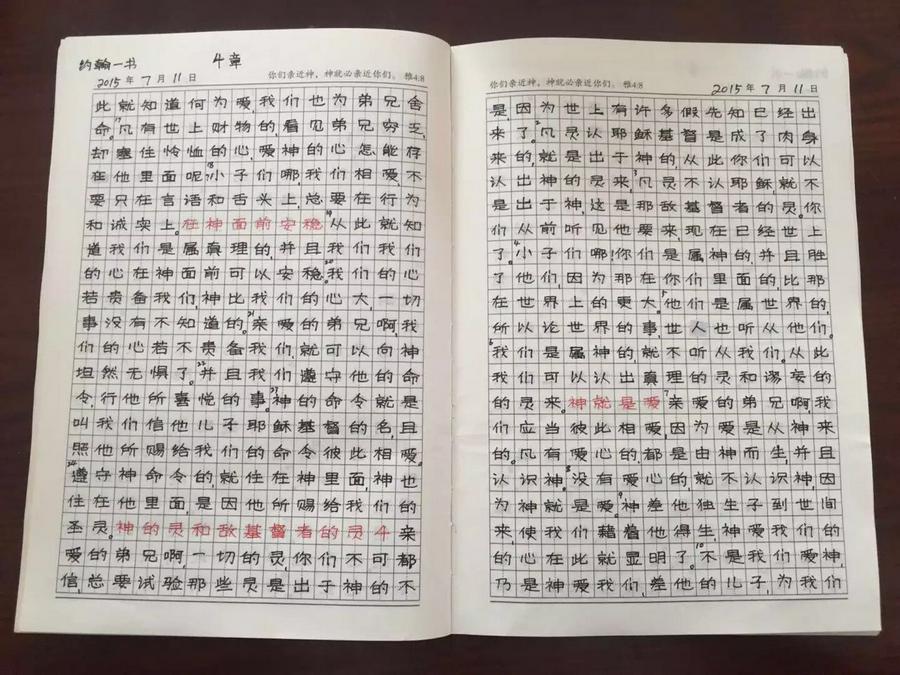 约翰一书 4章
2015年7月11日 你们亲近神，神就必亲近你们。 雅4:8
此就知道何为爱,我们也为弟兄舍
命。17凡有世上财物的,看见弟兄穷乏,
却塞住怜恤的心,爱神的心怎能存
在他里面呢?18小子们哪,我们相爱,不
要只在言语和舌头上,总要在行为
和诚实上。在神面前安稳19从此就知
道我们是属真理的,并且我们我们
的心在神面前可以安稳。20我们的心
若责备我们,神比我们的心大,一切
事没有不知道的。21亲爱的弟兄啊,我
们的心若不责备我们,就可以向神
坦然无惧了。22并且我们遵守他的命
令,行他所喜悦的事。23神的命令就是
叫我们信他儿子耶稣基督的名,且
照他所赐给我们的命令彼此相爱。
24遵守神命令的就住在神里面,神也
住在他里面,是因他所赐给我们的
圣灵。神的灵和敌基督者的灵4亲
爱的弟兄啊,一切的灵,你们不可都
信,总要试验那些灵是出于神的不
你们亲近神，神就必亲近你们。 雅4:8 2015年7月11日
是,因为世上有许多假先知已经出
来了。2凡灵认耶稣基督是成了肉身
来的,就是出于神的,从此你们可以
认出神的灵来。3凡灵不认耶稣,就不
是出于神,这是那敌基督者的灵。你
们从前听见他要来,现在已经世上
了。4小子们哪!你们是属神的,并且胜
了他们,因为那在你们里面的,比那
在世界上的更大。5他们是属世界的,
所以论世界的事,世人也听从他们。
6我们是属神的就不听从我们。从此
我们可以认出真理的灵和谬妄的
的灵来。神就是爱7亲爱的弟兄啊,我
们应当彼此相爱,因为爱是从神来
的。凡有爱心的,都是由神而生,并且
认识神。8没有爱心的,就不认识神因
为神就是爱9神差他独生子到世间
来,使我们藉着他得生,神爱我们的
的心在此就显明了。10不是我们爱神,
乃是神爱我们,差他的儿子,为我们